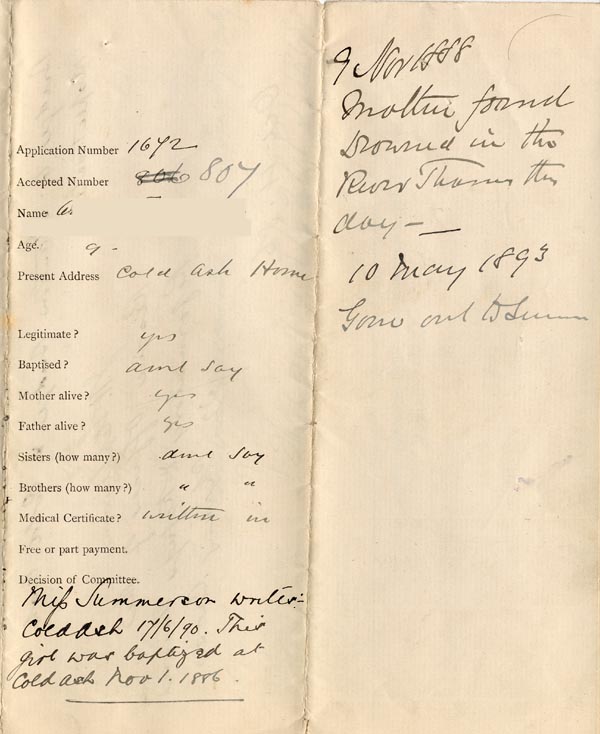 Application Number 1642
Accepted Number 806 807
Name
Age. 9 -
Present Address Cold Ash Home
Legitimate? yes
Baptised? dont say
Mother alive? yes
Father alive? yes
Sisters (how many?) dont say
Brothers (how many?) " "
Medical Certificate? written in
Free or part payment.
Decision of Committee.
Miss Summerson writes:-
Cold Ash 17/6/90. This
girl was baptized at
Cold Ash Nov 1. 1886.
9 Nov 1888
Mother found
Drowned in the
River Thames this
day —
10 May 1893
Gone out to Service